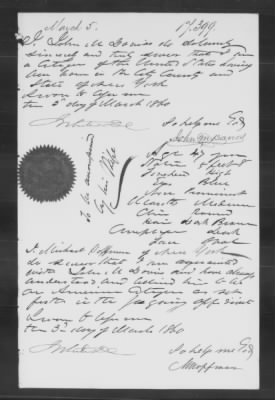 March 5. 17,399.
I, John M Davies do solemnly
sincerely and truly swear that I am
a Citizen of the United States having
been born in the City County and
State of New York
Sworn to before me
this 3d day of March 1860
So help me God
John M Davies
To be accompanied
by his Wife
Age 42 years
Stature 5 feet
Forehead High
Eyes Blue
Nose Prominent
Mouth Medium
Chin Round
Hair Dark Brown
Complexion Dark
Face Oval
I, Michael Hoffman of New York
do swear that I am acquainted
with John M Davies and have always
understood and believed him to be
an American Citizen as set
forth in the foregoing affidavit
Sworn to before me
this 3d day of March 1860
So help me God
M Hoffman